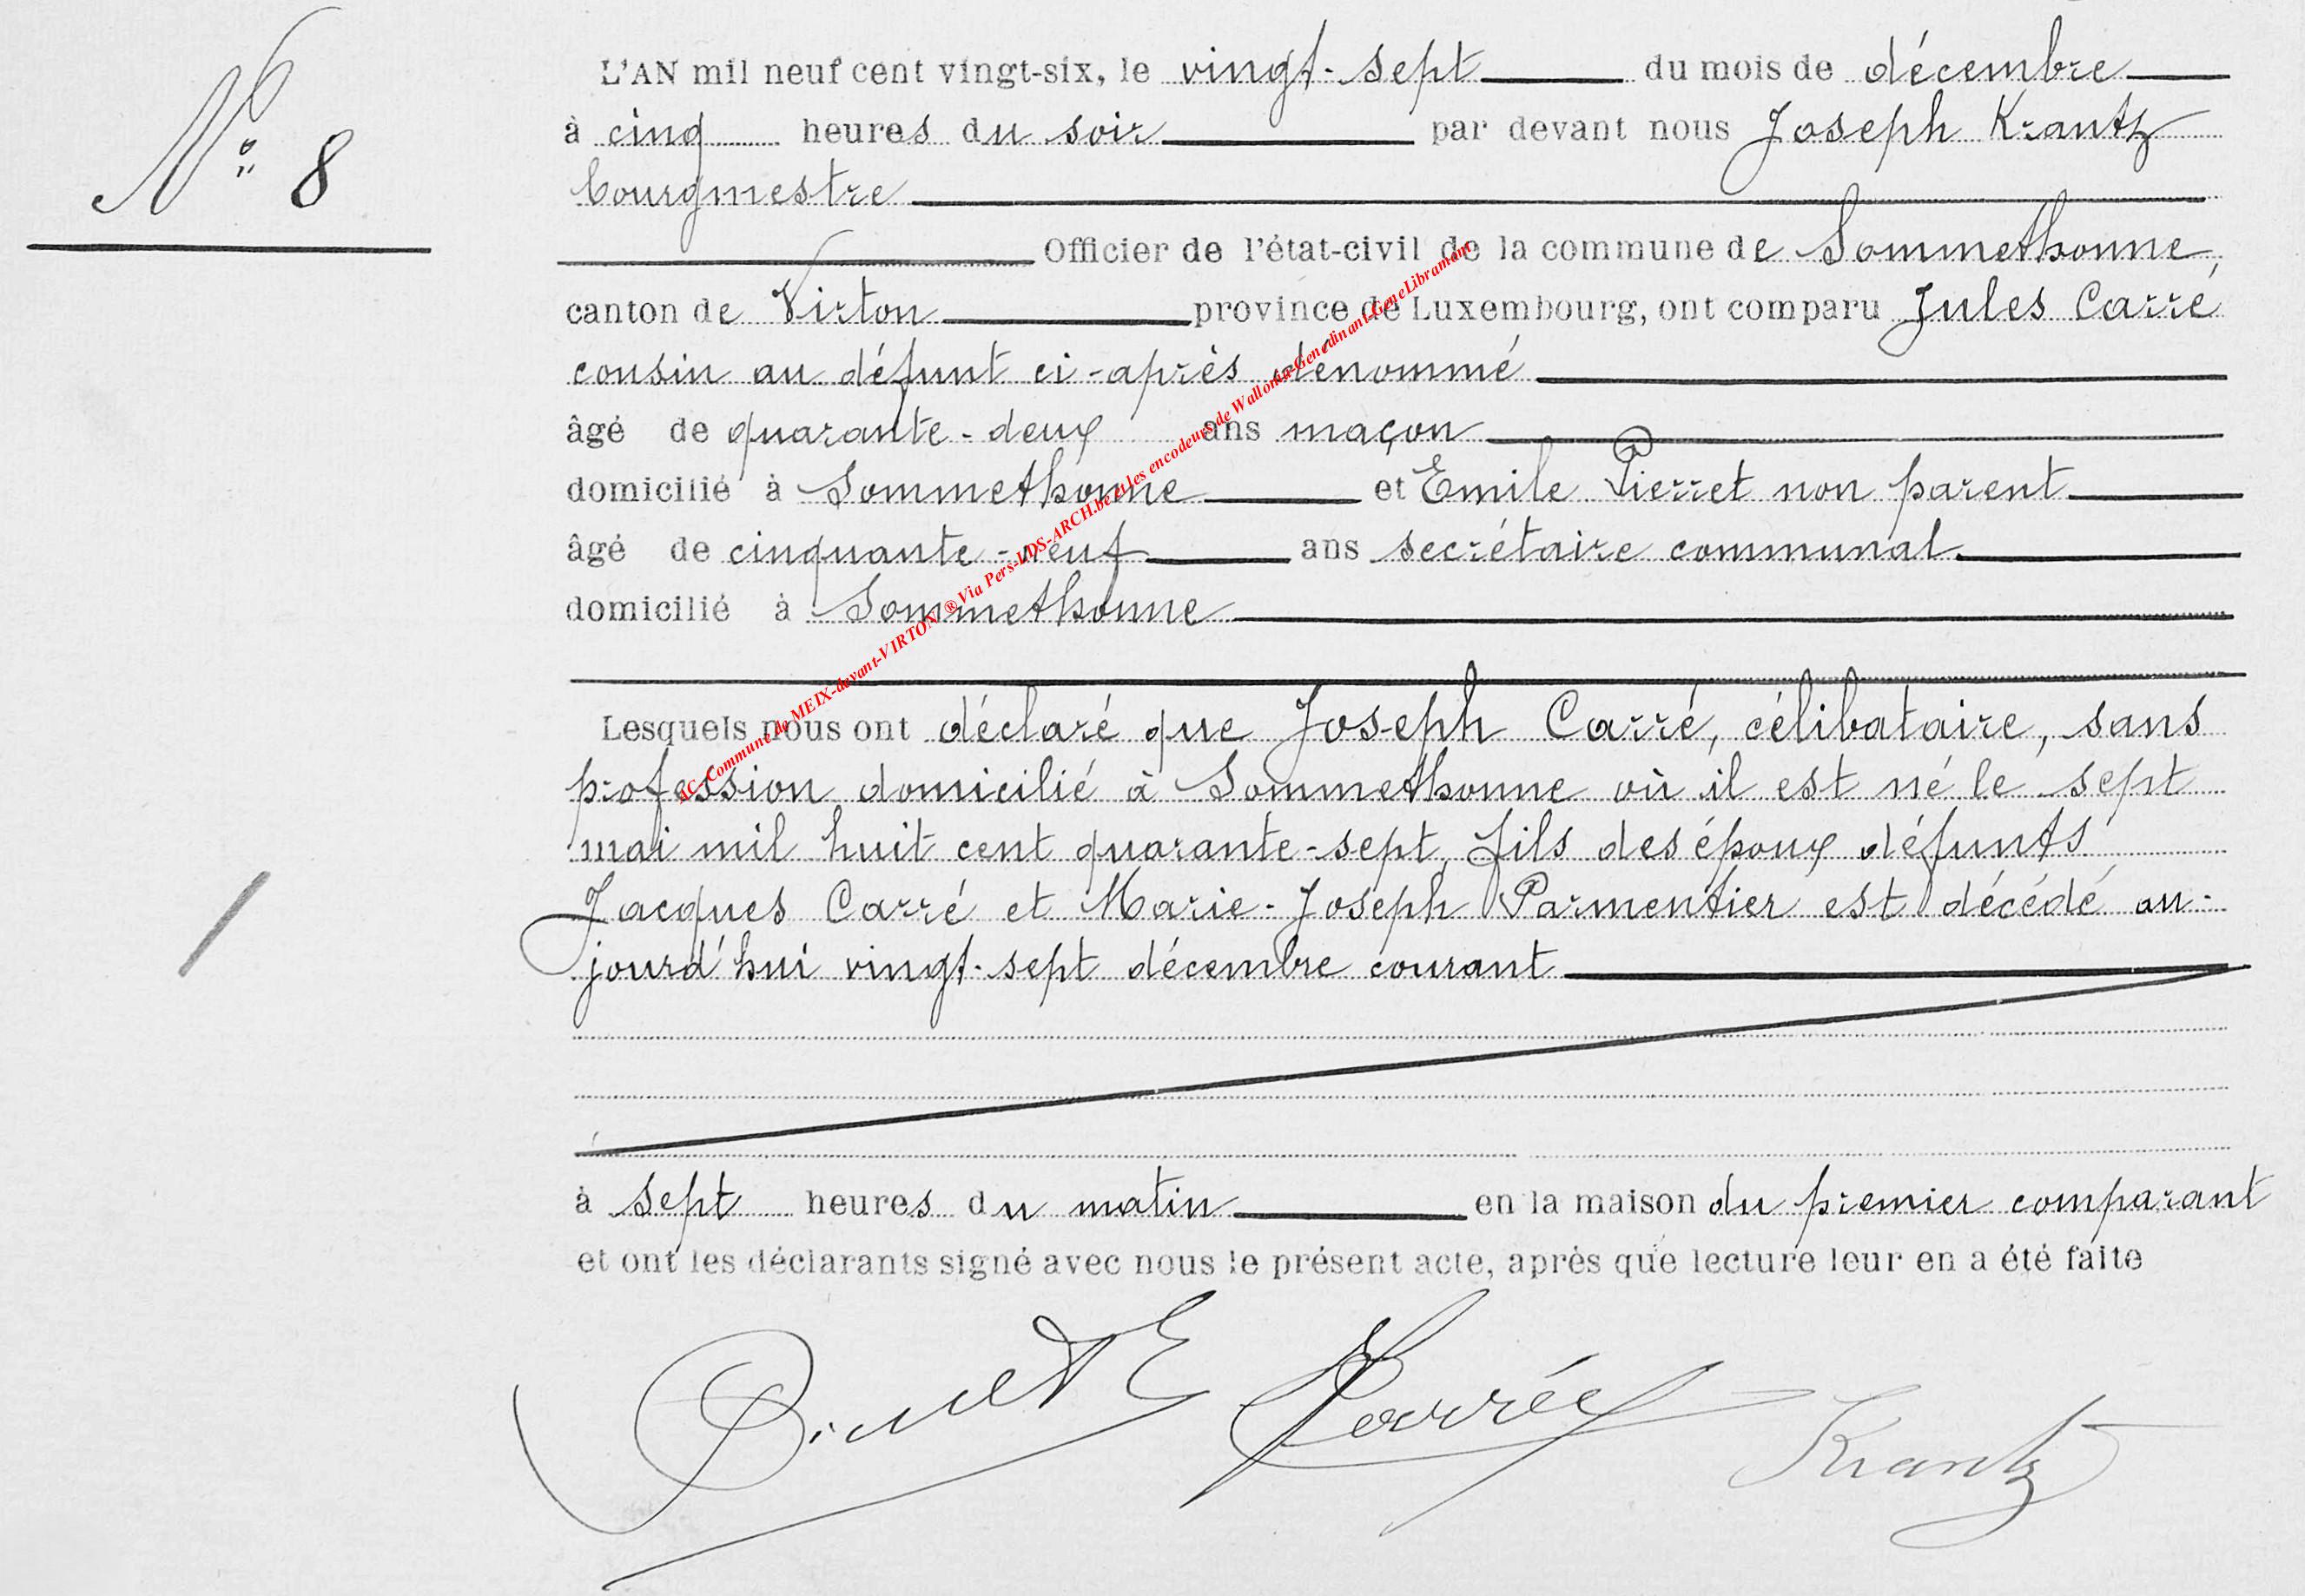 Nº 8
L'AN mil neuf cent vingt-six, le vingt-sept du mois de décembre
à cinq heures du soir par devant nous Joseph Krantz
bourgmestre
Officier de l'état-civil de la commune de Sommethonne,
canton de Virton province de Luxembourg, ont comparu Jules Carré
cousin au défunt ci-après dénommé
âgé de quarante-deux ans maçon
domicilié à Sommethonne et Emile Pierret non parent
âgé de cinquante-neuf ans secrétaire communal
domicilié à Sommethonne
Lesquels nous ont déclaré que Joseph Carré, célibataire, sans
profession domicilié à Sommethonne où il est né le sept
mai mil huit cent quarante-sept, fils des époux défunts
Jacques Carré et Marie-Joseph Parmentier est décédé au-
jourd'hui vingt-sept décembre courant
à sept heures du matin en la maison du premier comparant
et ont les déclarants signé avec nous le présent acte, après que lecture leur en a été faite
Pierret E Carré Krantz
AC - Commune de MEIX-devant-VIRTON ® Via Pers-LDS-ARCH.be et les encodeurs de Wallonia-Genedinant-GeneLibramont